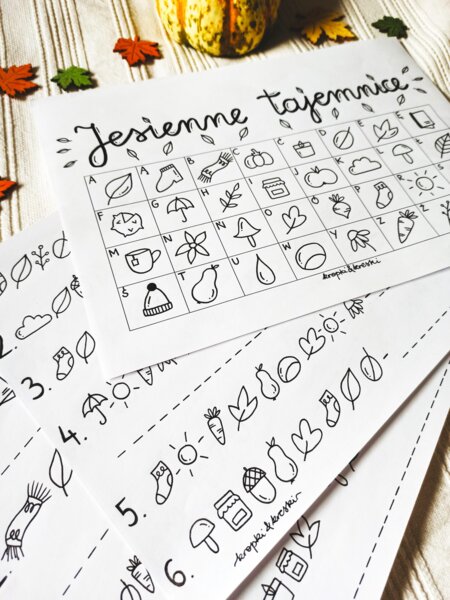 Jesienne tajemnice
A A B C C D E E
F G H I J K L
M N N O O P R S
Ś T U W Y Z Z
kropki&kreski
2.
3.
4.
5.
6.
kropki&kreski